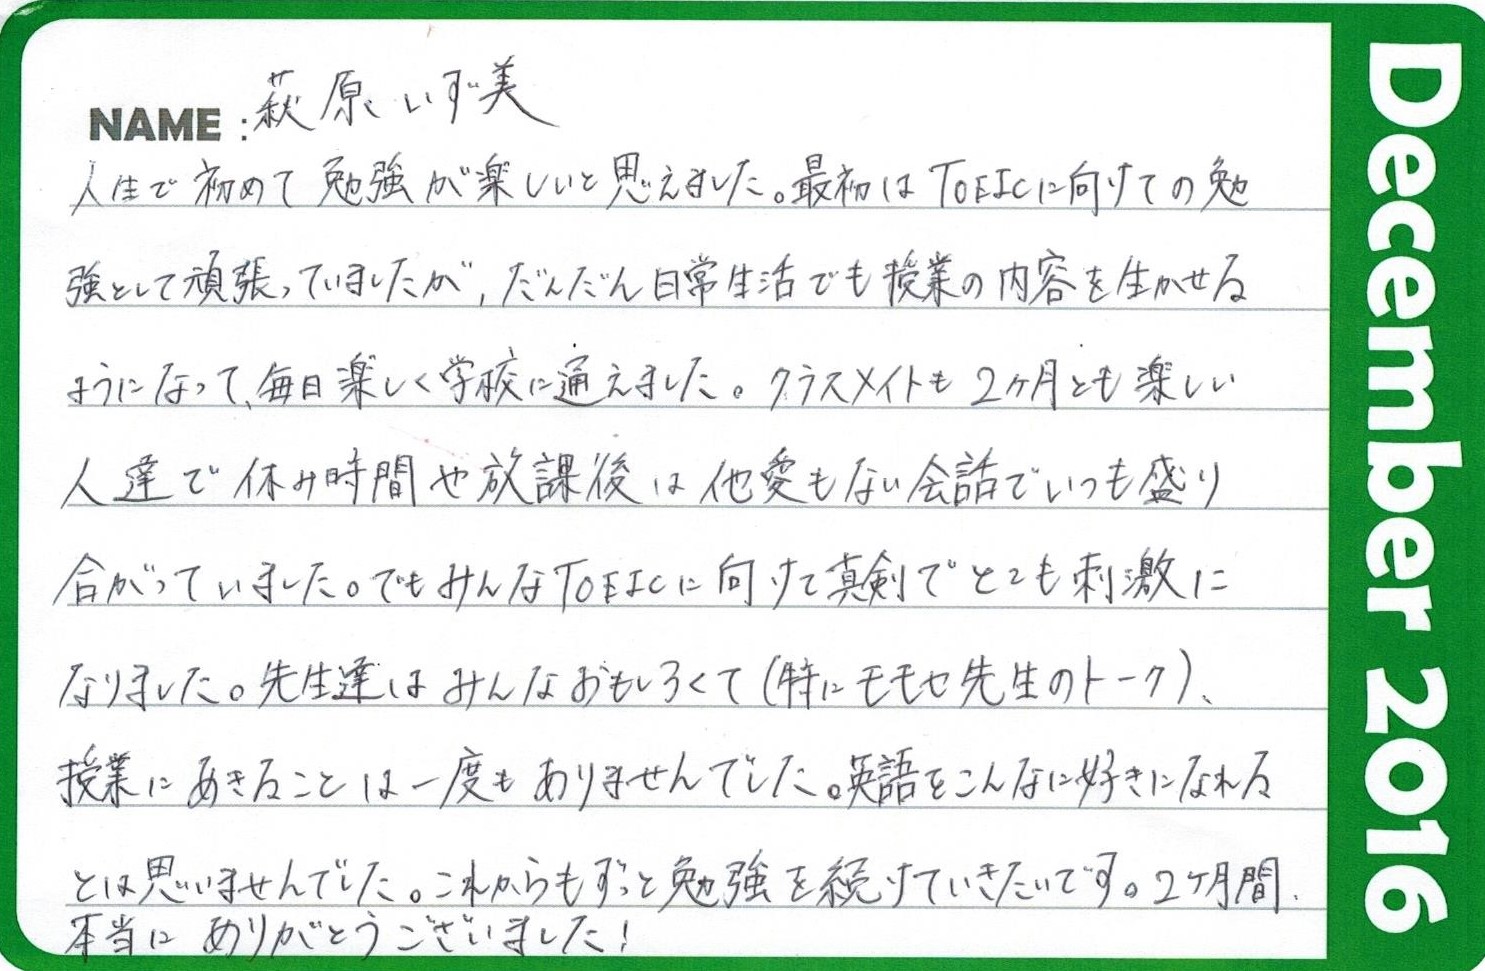 NAME : 萩原いず美
人生で初めて勉強が楽しいと思えました。最初はTOEICに向けての勉
強として頑張っていましたが、だんだん日常生活でも授業の内容を生かせる
ようになって、毎日楽しく学校に通えました。クラスメイトも2ヶ月とも楽しい
人達で休み時間や放課後は他愛もない会話でいつも盛り
合がっていました。でもみんなTOEICに向けて真剣でとても刺激に
なりました。先生達はみんなおもしろくて(特にモモセ先生のトーク)、
授業にあきることは一度もありませんでした。英語をこんなに好きになれる
とは思いませんでした。これからもずっと勉強を続けていきたいです。2ヶ月間、
本当にありがとうございました!
December 2016